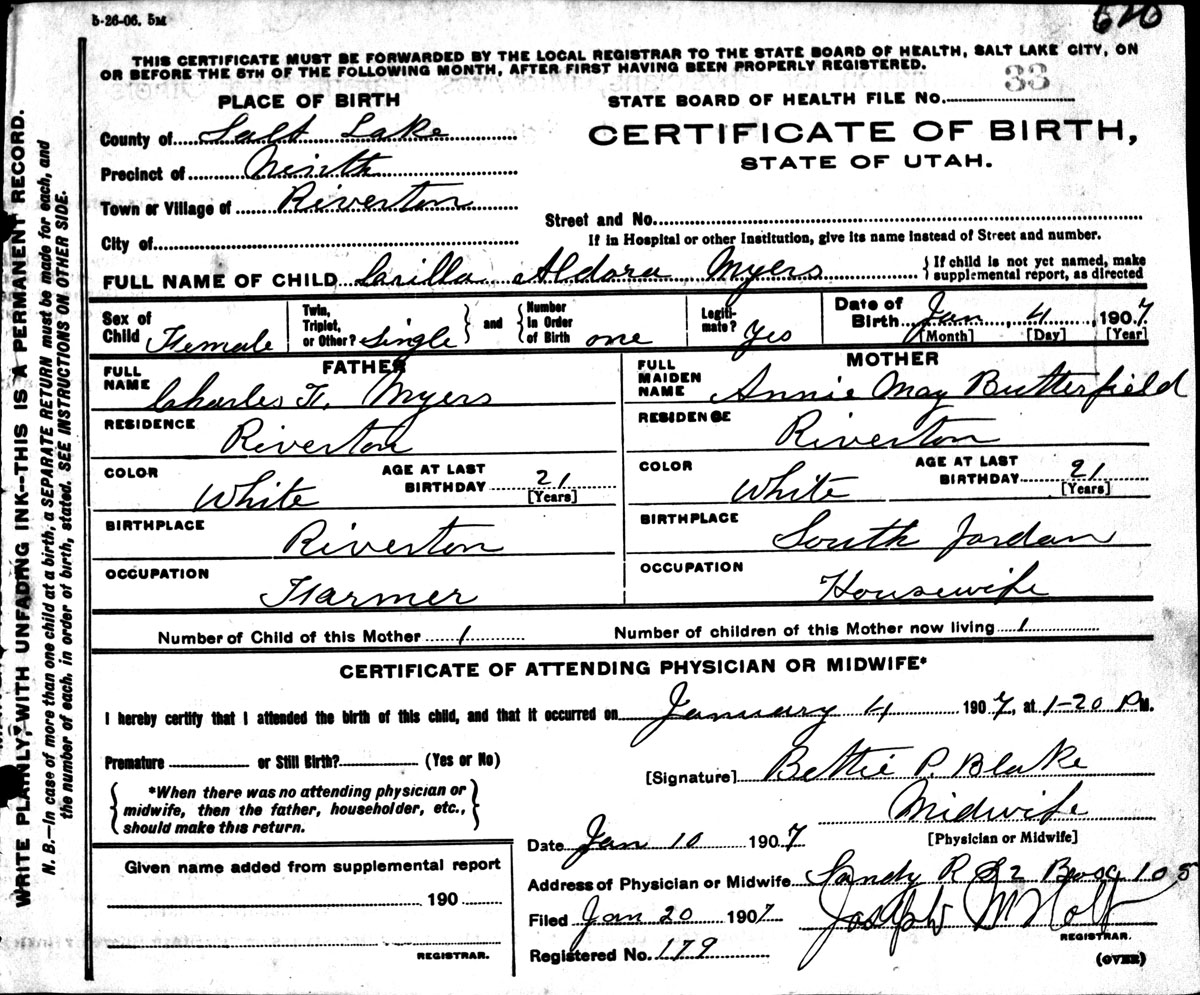 5-26-06. 5M
THIS CERTIFICATE MUST BE FORWARDED BY THE LOCAL REGISTRAR TO THE STATE BOARD OF HEALTH, SALT LAKE CITY, ON
OR BEFORE THE 5TH OF THE FOLLOWING MONTH, AFTER FIRST HAVING BEEN PROPERLY REGISTERED.
PLACE OF BIRTH
STATE BOARD OF HEALTH FILE No. 33
County of Salt Lake
CERTIFICATE OF BIRTH,
STATE OF UTAH.
Precinct of Ninth
Town or Village of Riverton
Street and No.
City of
If in Hospital or other Institution, give its name instead of Street and number.
FULL NAME OF CHILD Aldora Myers { If child is not yet named, make
supplemental report, as directed
Sex of Child Female
Twin, Triplet, or Other? Single } and { Number In Order of Birth one
Legiti-mate? Yes
Date of Birth Jan 4, 1907
[Month] [Day] [Year]
FATHER
FULL NAME Charles H. Myers
RESIDENCE
Riverton
COLOR White
AGE AT LAST BIRTHDAY 21
[Years]
BIRTHPLACE
Riverton
OCCUPATION
Farmer
MOTHER
FULL MAIDEN NAME Annie May Butterfield
RESIDENCE
Riverton
COLOR White
AGE AT LAST BIRTHDAY 21
[Years]
BIRTHPLACE
South Jordan
OCCUPATION
Housewife
Number of Child of this Mother 1
Number of children of this Mother now living 1
CERTIFICATE OF ATTENDING PHYSICIAN OR MIDWIFE*
I hereby certify that I attended the birth of this child, and that it occurred on January 4 1907, at 1-20 P M.
Premature or Still Birth? (Yes or No)
*When there was no attending physician or
midwife, then the father, householder, etc.,
should make this return.
[Signature] Bettie P. Blake
Midwife
[Physician or Midwife]
Date Jan 10 1907
Given name added from supplemental report
190
REGISTRAR.
Address of Physician or Midwife Sandy R 2 Box 105
Filed Jan 20 1907
Joseph M Holt
REGISTRAR.
Registered No. 179
(OVER)
WRITE PLAINLY, WITH UNFADING INK--THIS IS A PERMANENT RECORD.
N. B.—In case of more than one child at a birth, a SEPARATE RETURN must be made for each, and
the number of each, in order of birth, stated. SEE INSTRUCTIONS ON OTHER SIDE.